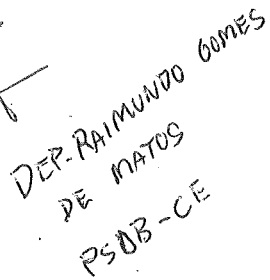 DEP. RAIMUNDO GOMES
DE MATOS
PSDB-CE